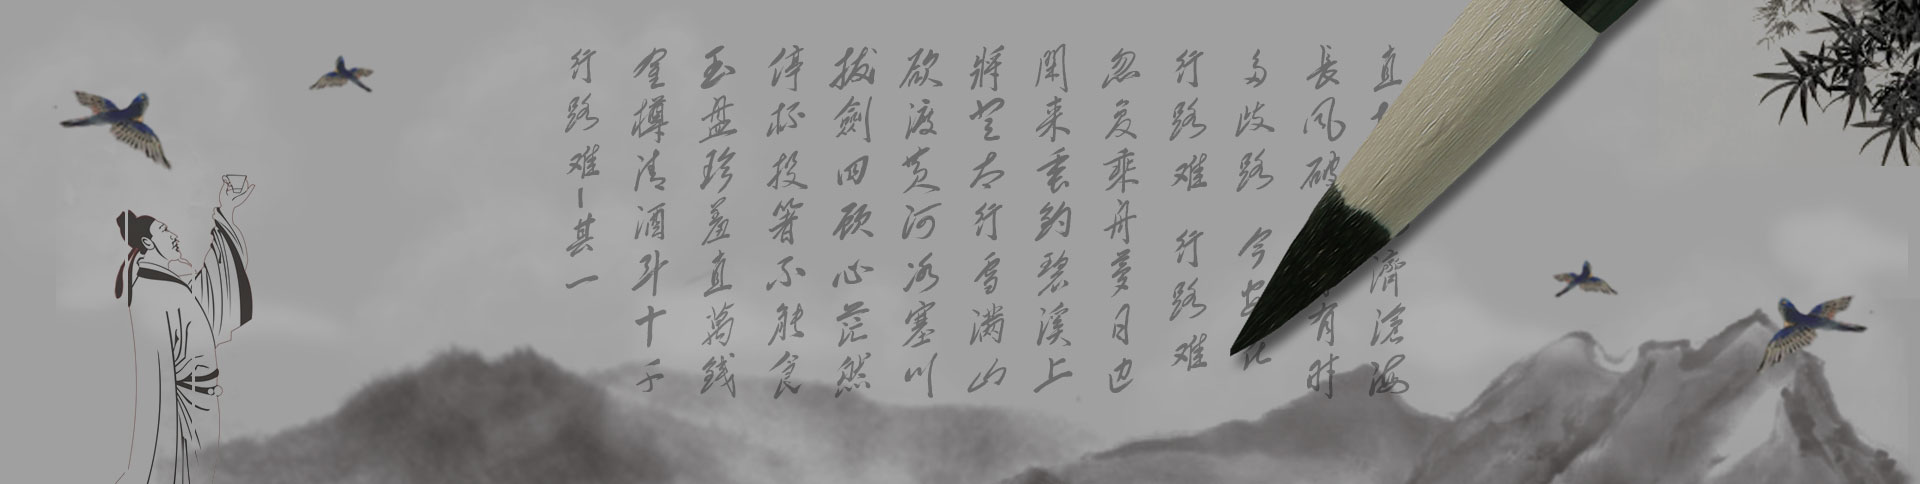 行路难-其一
金樽清酒斗十千
玉盘珍羞直萬錢
停杯投箸不能食
拔劍四顾心茫然
欲渡黄河冰塞川
將登太行雪满山
閑来垂釣碧溪上
忽复乘舟夢日边
行路难 行路难
多歧路 今安
長风破 有时
直 濟滄海